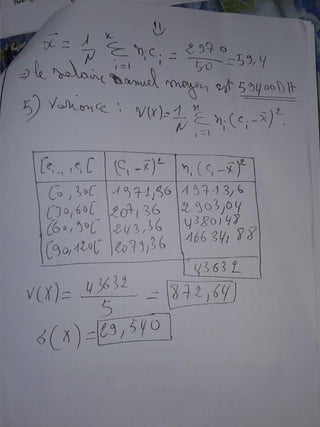 11
x̄ = 1/N Σ_{i=1}^{k} n_i c_i = 2970/50 = 59,4
⇒ le salaire annuel moyen est 59400DH
5) variance : V(X) = 1/N Σ_{i=1}^{k} n_i (c_i - x̄)².
[e_{i-1}, e_i[ | (c_i - x̄)² | n_i (c_i - x̄)²
[0, 30[ | 1971,36 | 19713,6
[30, 60[ | 207,36 | 2903,04
[60, 90[ | 243,36 | 4380,48
[90, 120[ | 2079,36 | 16634,88
43632
V(X) = 43632/5 = 872,64
σ(X) = 29,540